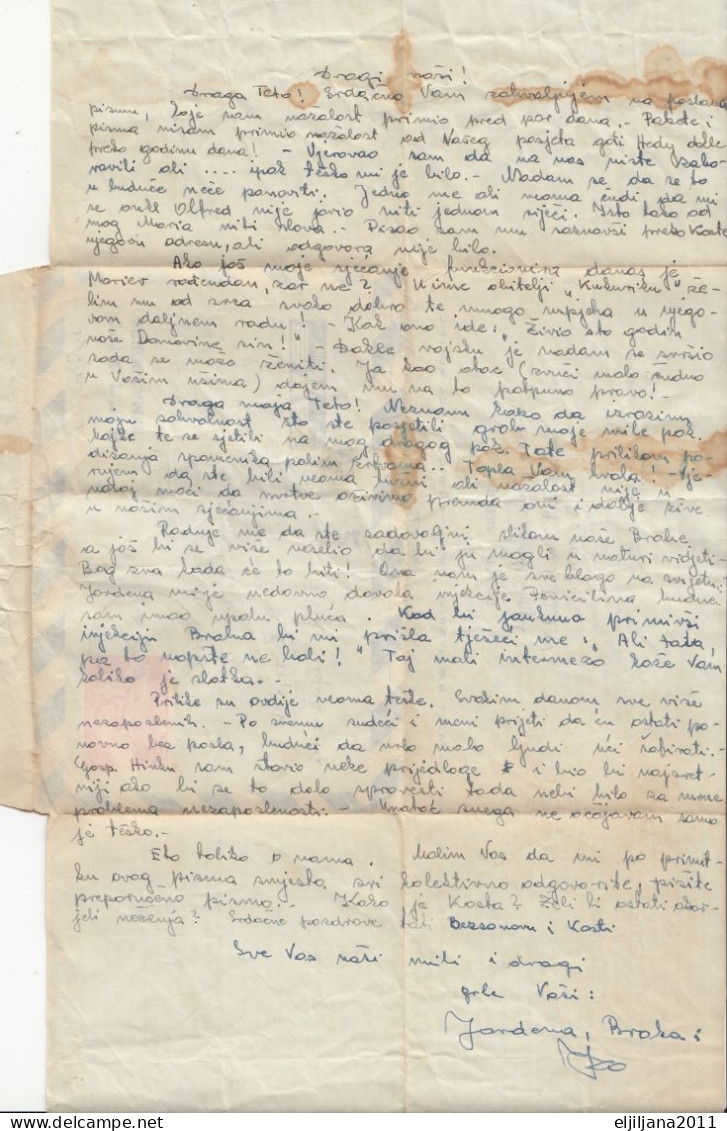 Dragi naši!
Draga Teto! Srdačno Vam zahvaljujem na poslanom
pismu, koje sam nažalost primio pred par dana.. Pakete i
pisma nisam primio nažalost od Vašeg posjeta goti Hedy dakle
preko godinu dana! - Vjerovao sam da na nas niste zabo-
ravili ali .... ipak teško mi je bilo.- Nadam se da se to
u buduće neće ponoviti. Jedno me ali veoma čudi da mi
se onkl Alfred nije javio niti jednom riječi. Isto tako od
mog Maria niti slova.- Pisao sam mu saznavši preko Koste
njegovu adresu, ali odgovora nije bilo.
Ako još moje sjećanje funkcionira danas je
Mariev rođendan, zar ne? U ime obitelji „Kukuriku" že-
lim mu od srca svako dobro te mnogo uspjeha u njego-
vom daljnem radu! - Kak ono ide: „Živio sto godin
naše Domovine sin!" - Dakle vojsku je nadam se svršio
sada se može ženiti. Ja kao otac (zvuči malo čudno
u Vašim ušima) dajem mu na to potpuno pravo!-
Draga moja Teto! Neznam kako da izrazim
moju zahvalnost što ste posjetili grob moje mile pok.
Majke te se sjetili na mog dragog pok. Tate prilikom po-
dizanja spomenika palim žrtvama.. Topla Vam hvala! - Vje-
rujem da ste bili veoma tužni ali nažalost nije u
našoj moći da mrtve oživimo premda oni i dalje žive
u našim sjećanjima.-
Raduje me da ste zadovoljni slikom naše Brahe
a još bi se više veselio da bi ju mogli u naturi vidjeti-
Bog zna kada će to biti! Ona nam je sve blago na svijetu.
Jardena mi je nedavno davala injekcije Penicilina budući
sam imao upalu pluća. Kad bi jauknuo primivši
injekciju Braha bi mi prišla tješeći me: „Ali tata,
pa to uopšte ne boli!" Taj mali intermezo kaže Vam
koliko je slatka.-
Prilike su ovdije veoma teške. Svakim danom sve više
nezaposlenih.- Po svemu sudeći i meni prijeti da ću ostati po-
novno bez posla, budući da vrlo malo ljudi uči šofirati.-
Gosp. Hinku sam stavio neke prijedloge i bio bi najsret-
niji ako bi se to dalo sprovesti tada nebi bilo za mene
problema nezaposlenosti.- Unatoč svega ne očajavam samo
je teško.-
Eto toliko o nama. Molim Vas da mi po primit-
ku ovog pisma smjesta svi kolektivno odgovorite, pišite
preporučeno pismo.- Kako je Kosta? Želi li ostati
jeli neženja? Srdačne pozdrave Bezsonovu i Kosti
Sve Vas naši mili i dragi
grle Vaši:
Jardena, Braha i